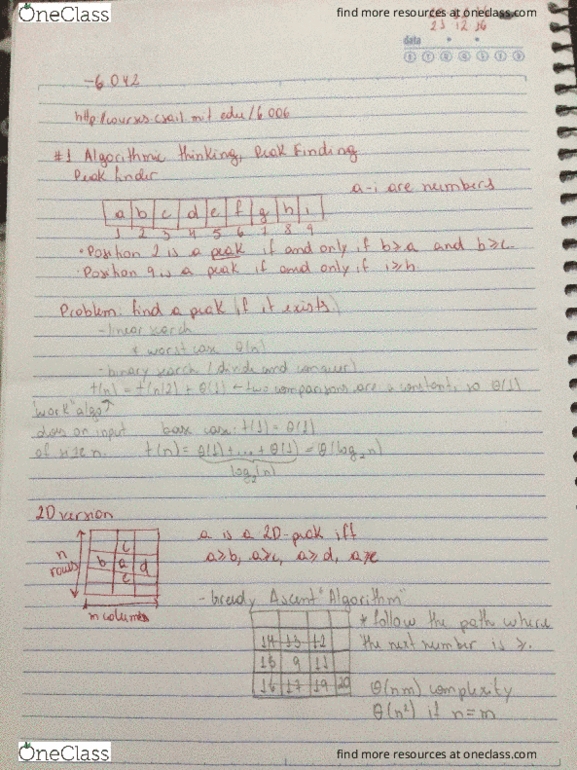 OneClass
find more resources at oneclass.com
23 12 16
data
D T Q Q S S D
-6.042
http://courses.csail.mit.edu/6.006
#1 Algorithmic thinking, Peak Finding
Peak finder
a-i are numbers
a b c d e f g h i
1 2 3 4 5 6 7 8 9
• Position 2 is a peak if and only if b≥a and b≥c.
• Position 9 is a peak if and only if i≥h
Problem: find a peak (if it exists)
- linear search
* worst case θ(n)
- binary search (divide and conquer)
t(n) = t(n/2) + θ(1) ← two comparisons are a constant, so θ(1)
"work" algo
does on input
of size n.
base case: t(1) = θ(1)
t(n) = θ(1)+...+θ(1) = θ(log₂n)
log₂(n)
2D version
n rows
c
b a d
e
m columns
a is a 2D-peak iff
a≥b, a≥c, a≥d, a≥e
- Greedy Ascent "Algorithm"
14 13 12
15 9 11
16 17 19 20
* follow the path where
the next number is ≥.
θ(nm) complexity
θ(n²) if n=m
OneClass
find more resources at oneclass.com